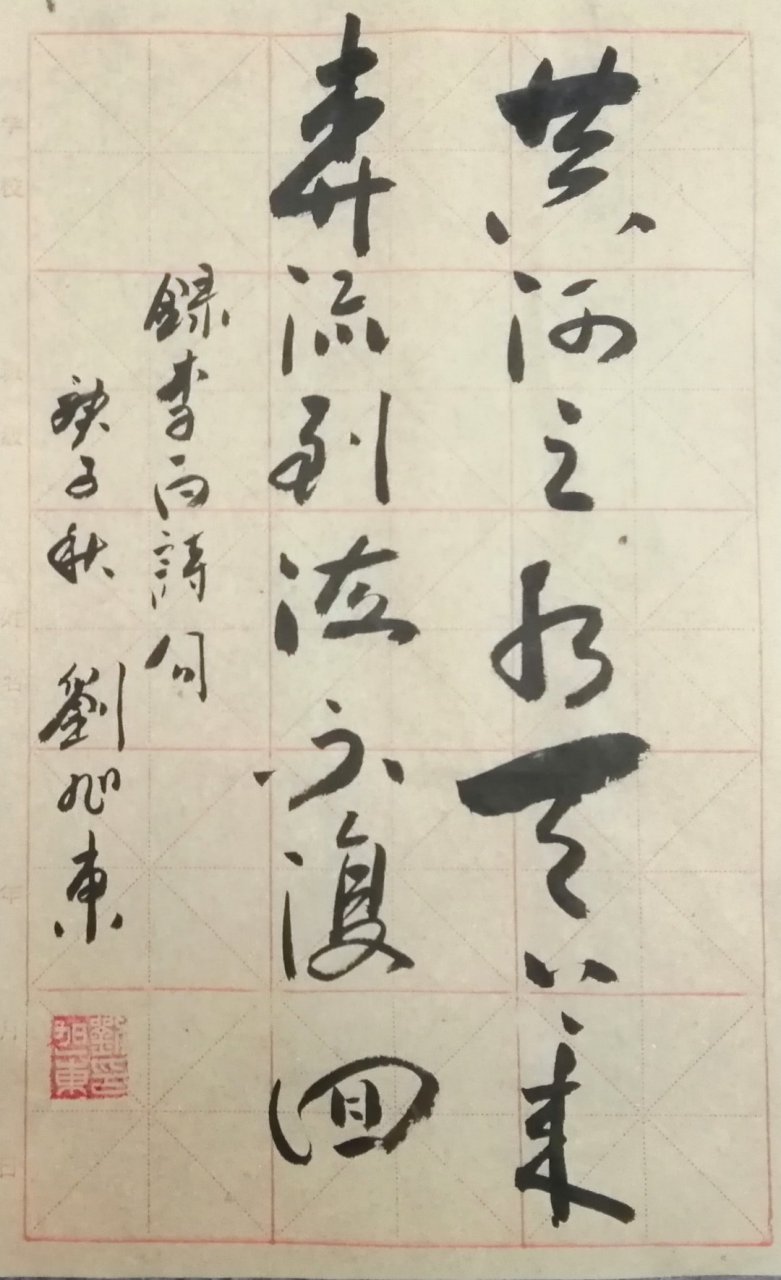 黄河之水天上来
奔流到海不復回
録李白詩句
庚子秋 劉旭東
劉旭東印